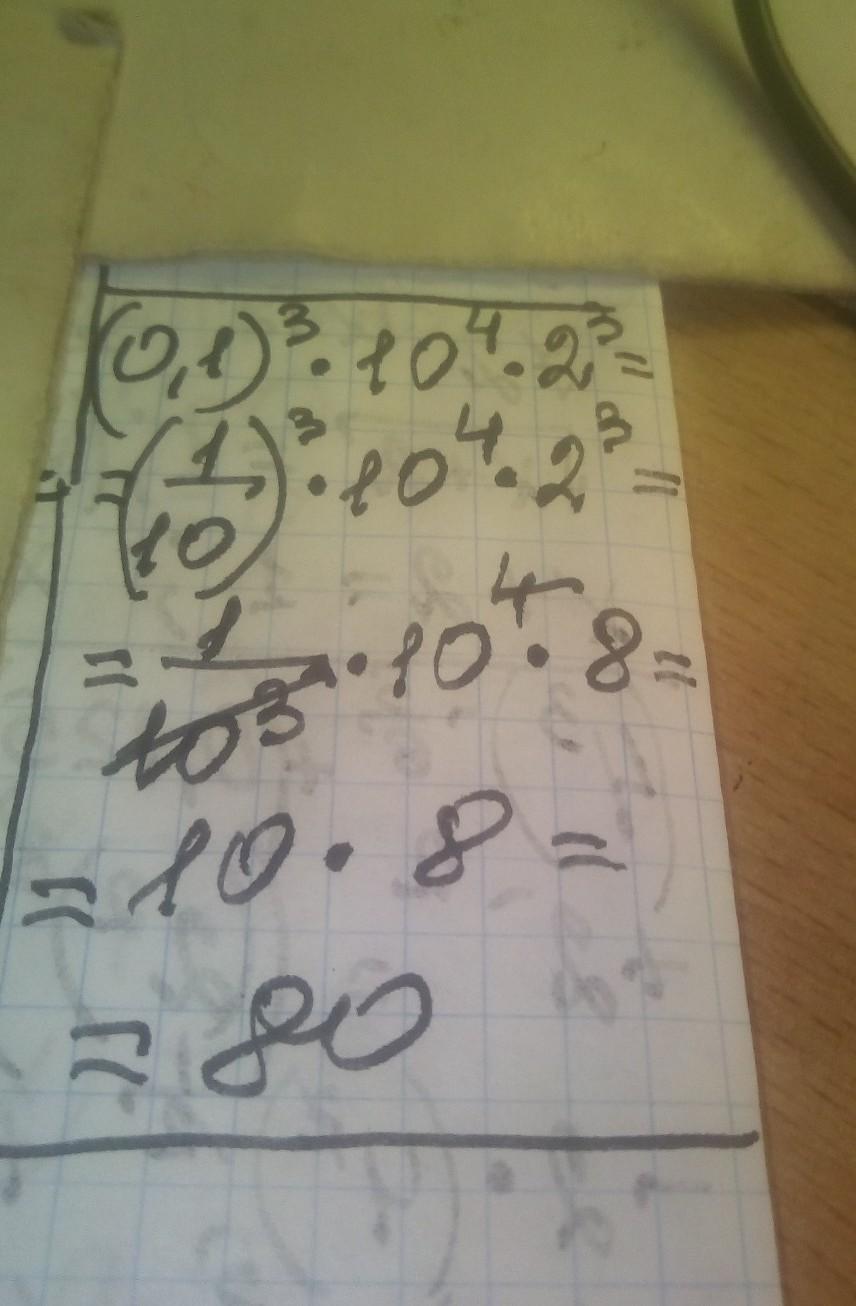 (0,1)³ · 10⁴ · 2³ =
= (1/10)³ · 10⁴ · 2³ =
= 1/10³ · 10⁴ · 8 =
= 10 · 8 =
= 80